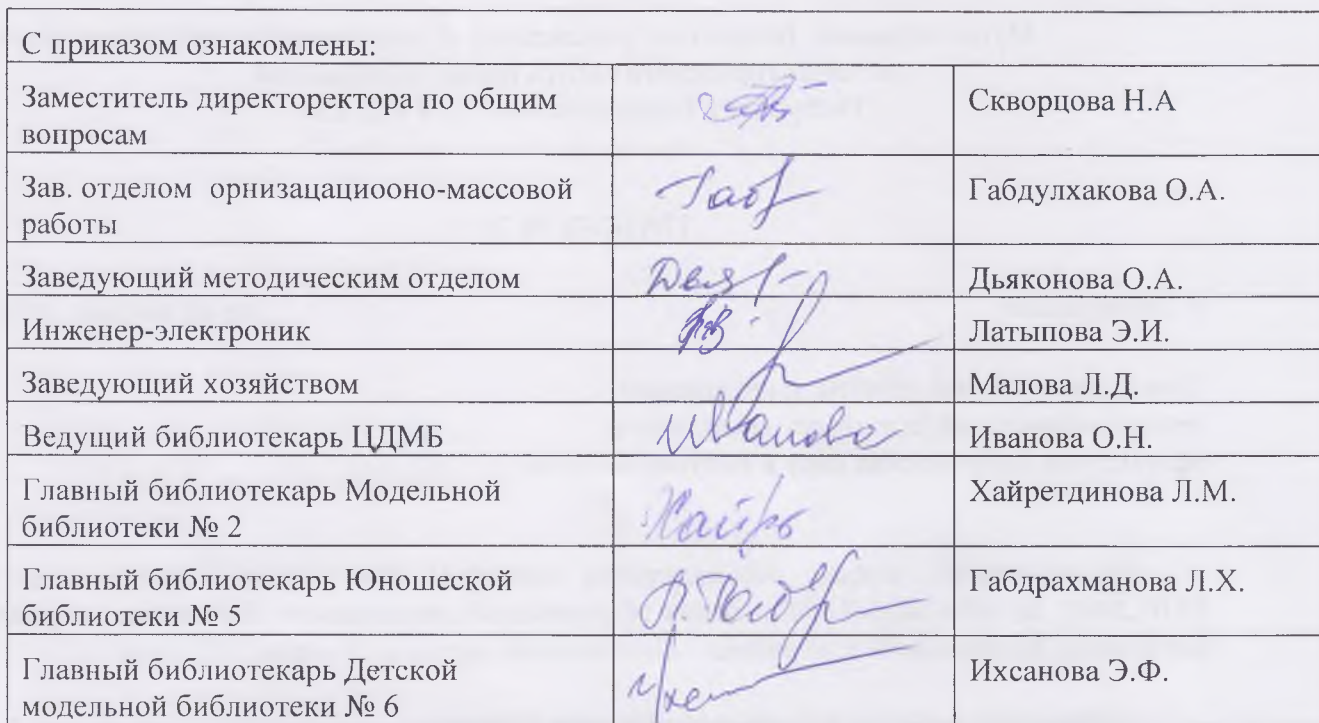 С приказом ознакомлены:
Заместитель директоректора по общим
вопросам
Скворцова Н.А
Зав. отделом орнизацациооно-массовой
работы
Габдулхакова О.А.
Заведующий методическим отделом
Дьяконова О.А.
Инженер-электроник
Латыпова Э.И.
Заведующий хозяйством
Малова Л.Д.
Ведущий библиотекарь ЦДМБ
Иванова
Иванова О.Н.
Главный библиотекарь Модельной
библиотеки № 2
Хайретдинова Л.М.
Главный библиотекарь Юношеской
библиотеки № 5
Габдрахманова Л.Х.
Главный библиотекарь Детской
модельной библиотеки № 6
Ихсанова Э.Ф.